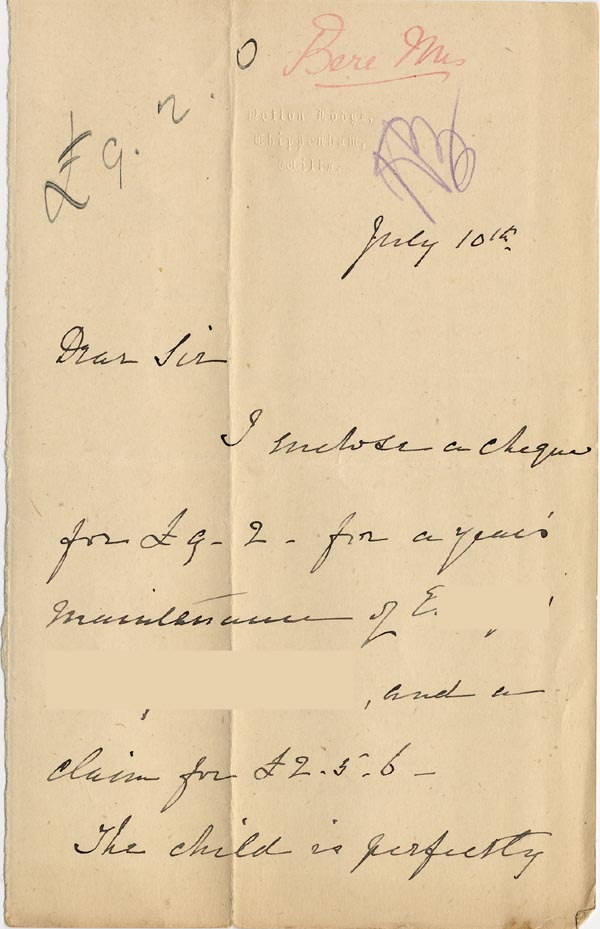 Bere Mrs
£9.2.0
Lodge,
Chippenham,
Wilts.
July 10th
Dear Sir
I enclose a cheque
for £9-2- for a year's
maintenance of E.
, and a
claim for £2.5.6-
The child is perfectly